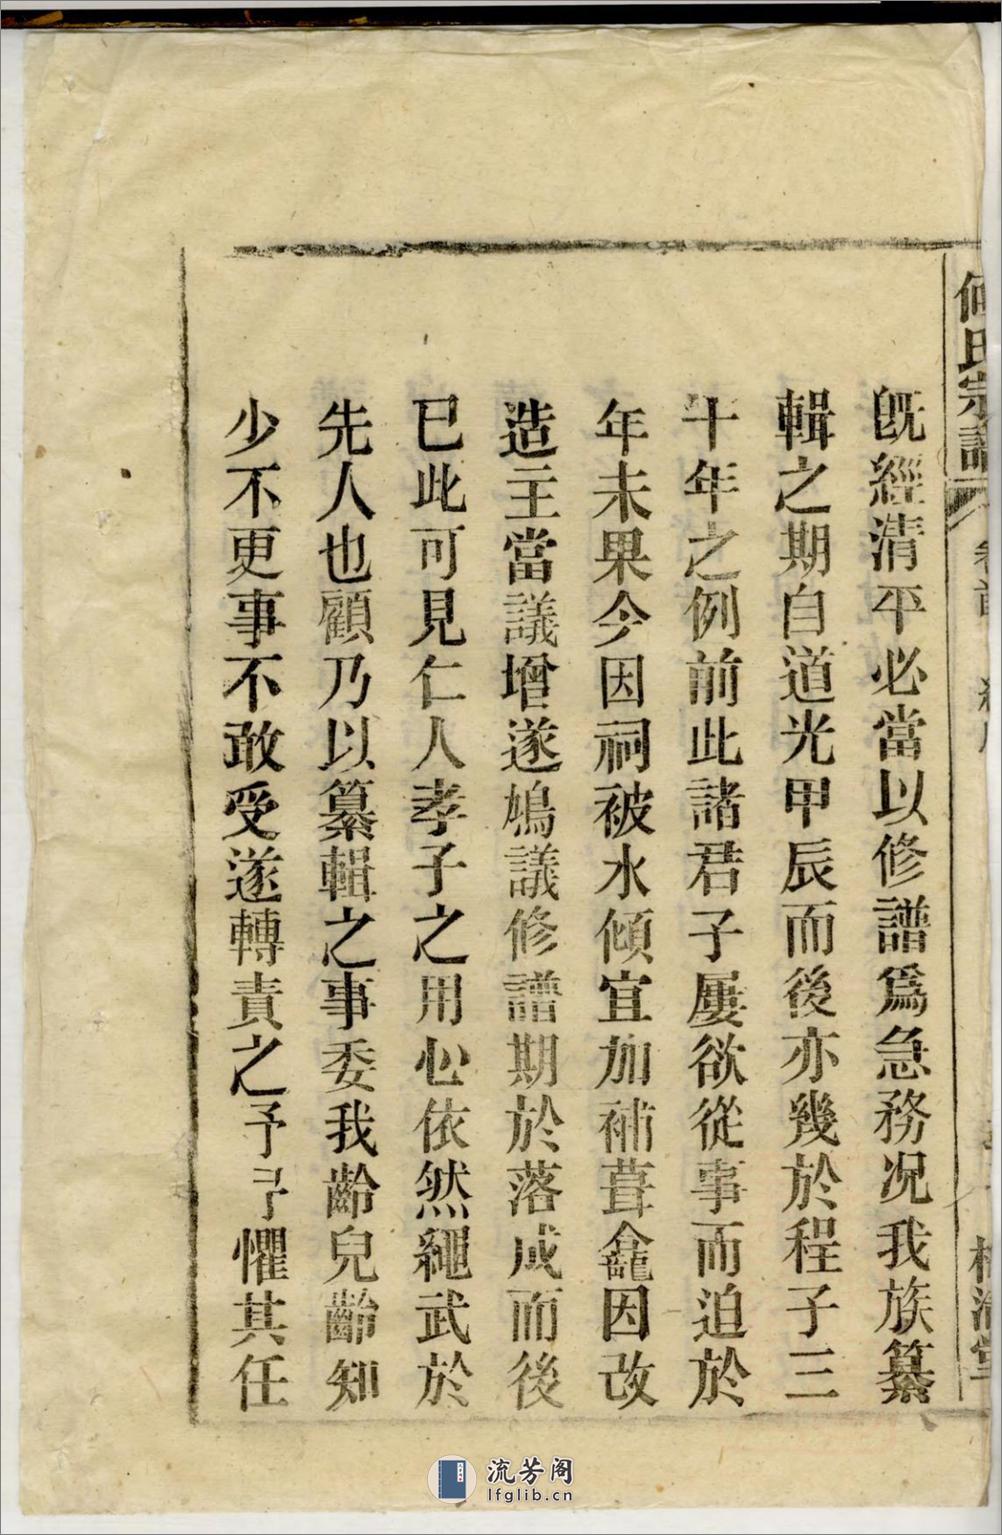 何氏宗譜
卷首
既經清平必當以修譜爲急務况我族纂
輯之期自道光甲辰而後亦幾於程子三
十年之例前此諸君子屢欲從事而迫於
年未果今因祠被水傾宜加補葺龕因改
造主當議增遂鳩議修譜期於落成而後
已此可見仁人孝子之用心依然繩武於
先人也顧乃以纂輯之事委我齡兒齡知
少不更事不敢受遂轉責之予予懼其任
流芳阁
lfglib.cn